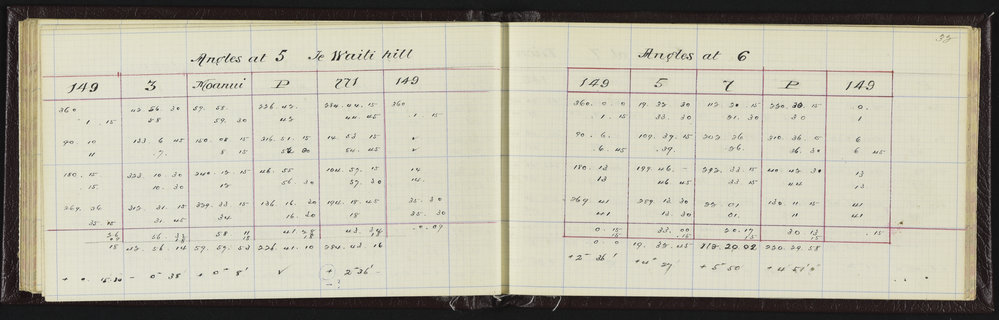 Angles at 5 Te Waiti hill
149 3 Moanui P 771 149
360 42. 56. 30 59. 58. 226. 42. 284. 44. 15 360
1. 15 58 59. 30 43 44. 45 1. 15
90. 10 133. 6 45 150. 08 15 316. 51. 15 14. 53 15
11 .7. 8 15 52 20 54. 45
180. 15 223. 10. 30 240. 12. 15 46. 55 104. 57. 15 14
15 10. 30 12 56. 30 57. 30 14
269. 36 312. 31. 15 329. 33. 15 136. 16. 30 194. 18. 45 35. 30
35. 15 31. 45 34. 16. 30 18 35. 30
15 42. 56. 14 59. 59. 53 226. 41. 10 284. 43. 16
+ 0 15.30 - 0 38 + 0 8' + 2 36'
- ?
33
Angles at 6
149 5 7 P 149
360. 0. 0 19. 32. 30 112. 20. 15 220. 30. 15 0.
. 1. 15 33. 30 21. 30 30 1
90. 6. 109. 39. 15 202. 26 310. 36. 0 6
. 6. 45 .39. 26. 36. 30 6 45
180. 13 199. 46. - 292. 33. 15 40. 43. 30 13
13 46. 45 33. 15 44 13
269 41 289. 13. 30 22 01 130. 11. 15 41
41 13. 30 01. 11 41
0. 15 33. 00 20. 17 30 13 . 15
15 15 15
0. 0 19. 32. 45 112. 20. 02 220. 29. 58
+ 2 36' + 4 27' + 5 50 + 4 51'